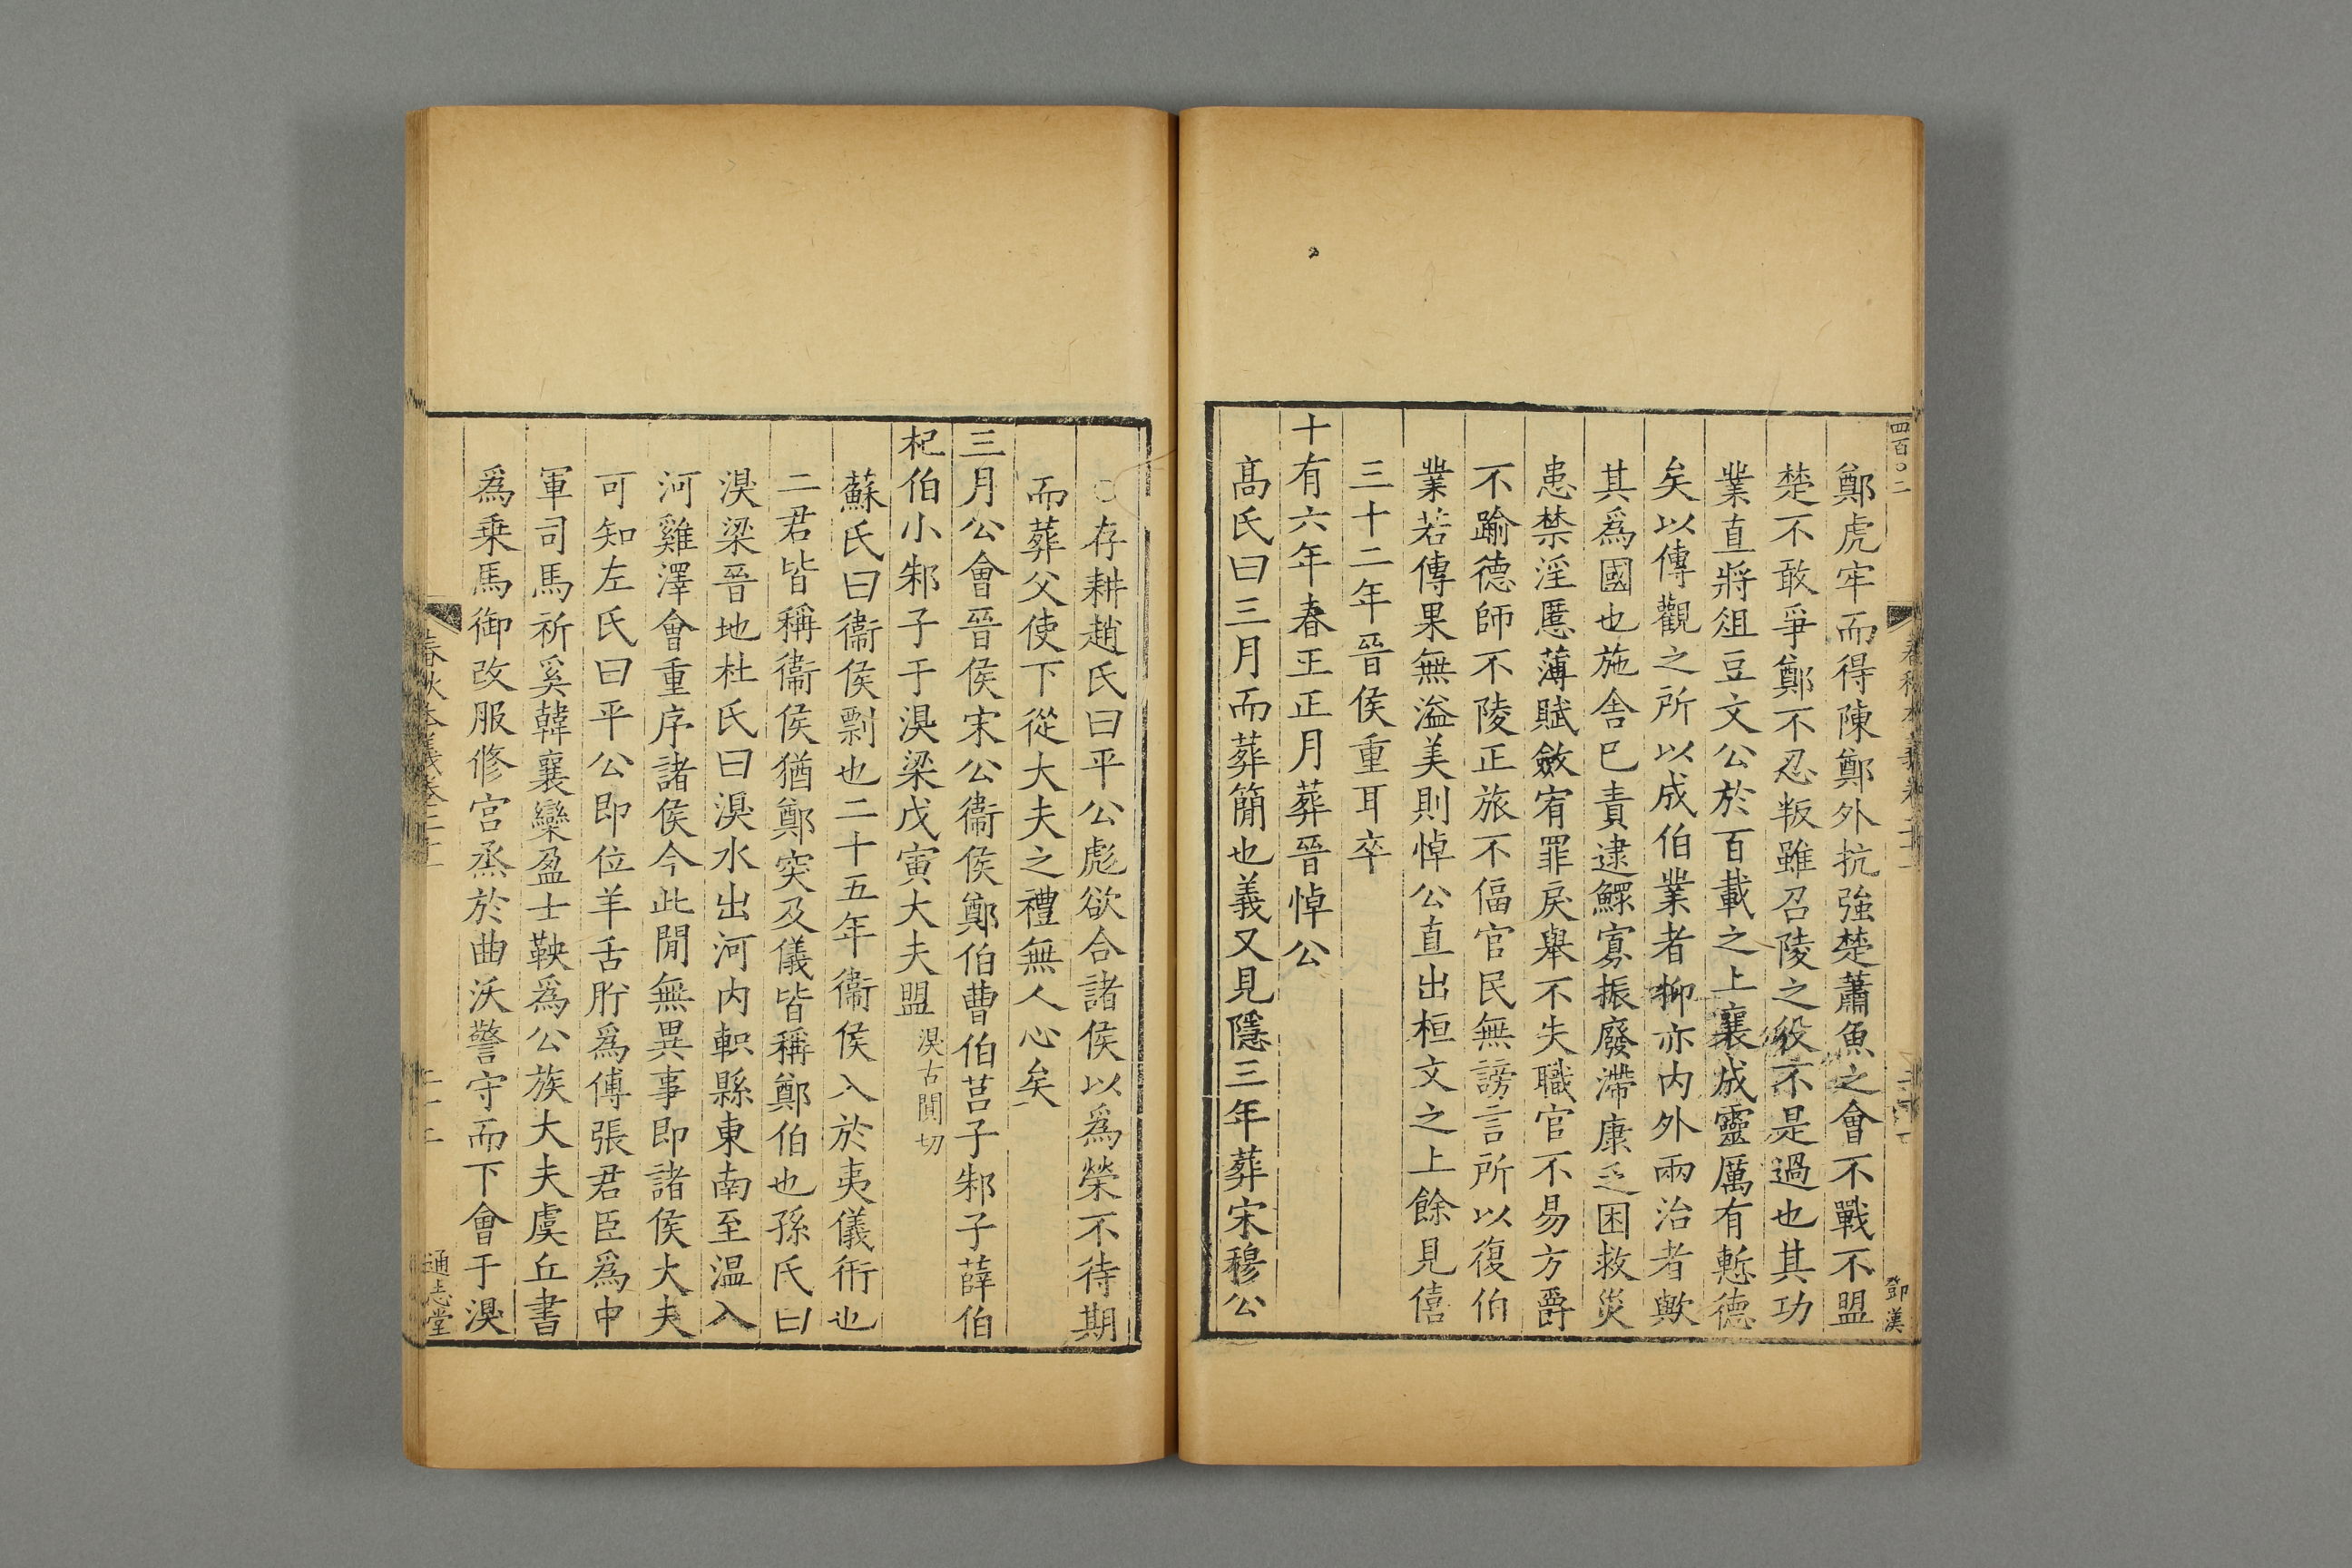 四百〇二
鄭虎牢而得陳鄭外抗強楚蕭魚之會不戰不盟
楚不敢爭鄭不忍叛雖召陵之役不是過也其功
業直將俎豆文公於百載之上襄成靈厲有慙德
矣以傳觀之所以成伯業者抑亦内外兩治者歟
其爲國也施舍已責逮鰥寡振廢滯康乏困救災
患禁淫慝薄賦斂宥罪戾舉不失職官不易方爵
不踰德師不陵正旅不偪官民無謗言所以復伯
業若傳果無溢美則悼公直出桓文之上餘見僖
三十二年晉侯重耳卒
十有六年春王正月葬晉悼公
高氏曰三月而葬簡也義又見隱三年葬宋穆公
鄧漢
○存耕趙氏曰平公彪欲合諸侯以爲榮不待期
而葬父使下從大夫之禮無人心矣
三月公會晉侯宋公衞侯鄭伯曹伯莒子邾子薛伯
杞伯小邾子于湨梁戊寅大夫盟湨古閴切
蘇氏曰衞侯剽也二十五年衞侯入於夷儀衎也
二君皆稱衞侯猶鄭突及儀皆稱鄭伯也孫氏曰
湨梁晉地杜氏曰湨水出河内軹縣東南至温入
河雞澤會重序諸侯今此閒無異事即諸侯大夫
可知左氏曰平公即位羊舌肸爲傅張君臣爲中
軍司馬祈奚韓襄欒盈士鞅爲公族大夫虞丘書
爲乗馬御改服修宫烝於曲沃警守而下會于湨
春秋本義卷二十二
通志堂